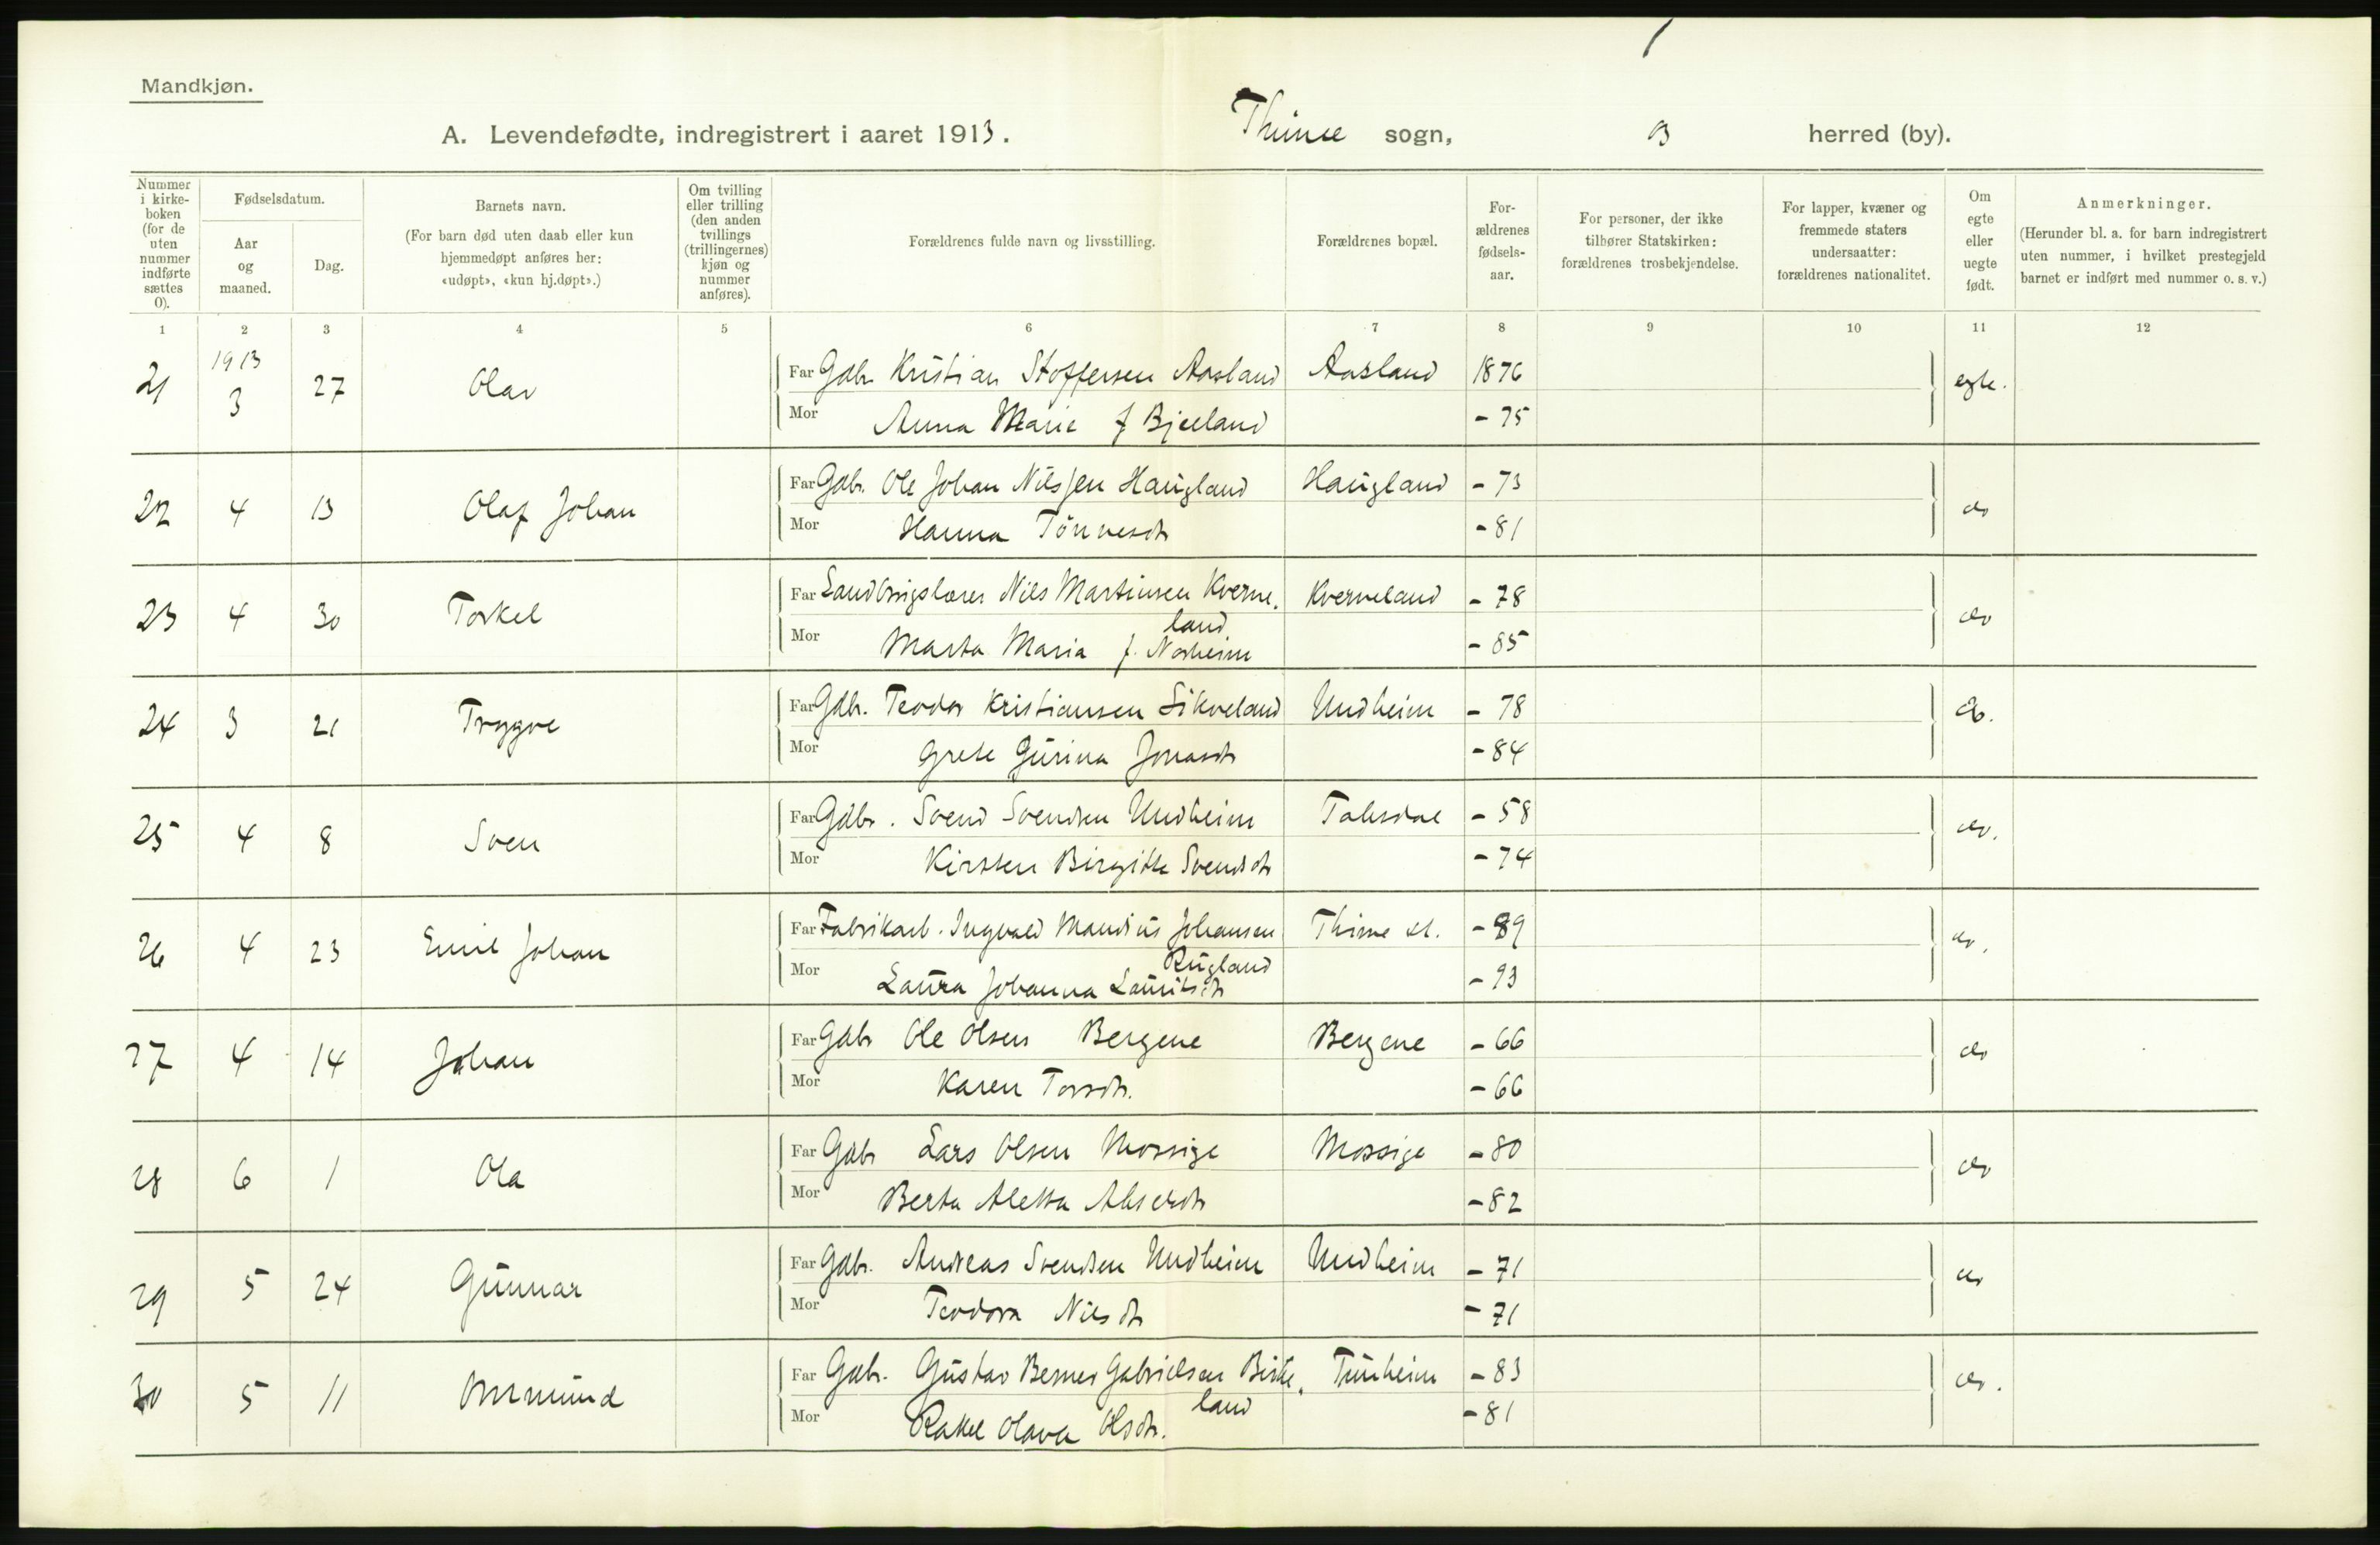 Mandkjøn.
A. Levendefødte, indregistrert i aaret 1913. Thime sogn, herred (by).
Nummer i kirkeboken (for de uten nummer indførte sættes 0).
Fødselsdatum.
Aar og maaned.
Dag.
Barnets navn.
(For barn død uten daab eller kun hjemmedøpt anføres her: «udøpt», «kun hj.døpt».)
Om tvilling eller trilling (den anden tvillings (trillingernes) kjøn og nummer anføres).
Forældrenes fulde navn og livsstilling.
Forældrenes bopæl.
For-ældrenes fødsels-aar.
For personer, der ikke tilhører Statskirken: forældrenes trosbekjendelse.
For lapper, kvæner og fremmede staters undersaatter: forældrenes nationalitet.
Om egte eller uegte født.
Anmerkninger.
(Herunder bl. a. for barn indregistrert uten nummer, i hvilket prestegjeld barnet er indført med nummer o. s. v.)
1 2 3 4 5 6 7 8 9 10 11 12
21 1913 3 27 Olav Far Gdbr. Kristian Stoffersen Aasland Aasland 1876 egte.
Mor Anna Marie f Bjelland - 75
22 4 13 Olaf Johan Far Gdbr. Ole Johan Nilssen Haugland Haugland - 73 do
Mor Hanna Tönnesdtr - 81
23 4 30 Torkel Far Landbrugslærer Nils Martinsen Kverne- Kverneland - 78 do
land
Mor Marta Maria f. Norheim - 85
24 3 21 Trygve Far Gdbr. Teodor Kristiansen Sikveland Undheim - 78 do.
Mor Grete Gurina Jonasdtr - 84
25 4 8 Sven Far Gdbr. Svend Svendsen Undheim - 58 do.
Mor Kirsten Birgitte Svendsdtr - 74
26 4 23 Emil Johan Far Fabrikarb. Ingvald Mandius Johansen Thime st. - 89 do.
Rugland
Mor Laura Johanna Lauritsdtr - 93
27 4 14 Johan Far Gdbr Ole Olsen Bergene Bergene - 66 do
Mor Karen Torsdtr. - 66
28 6 1 Ola Far Gdbr Lars Olsen Mossige Mossige - 80 do
Mor Berta Aletta - 82
29 5 24 Gunnar Far Gdbr. Andreas Svendsen Undheim Undheim - 71 do
Mor Teodora Nilsdtr - 71
30 5 11 Ommund Far Gdbr. Gustav Berner Gabrielsen Birke- Tunheim - 83 do.
land
Mor Rakel Olava Olsdtr. - 81